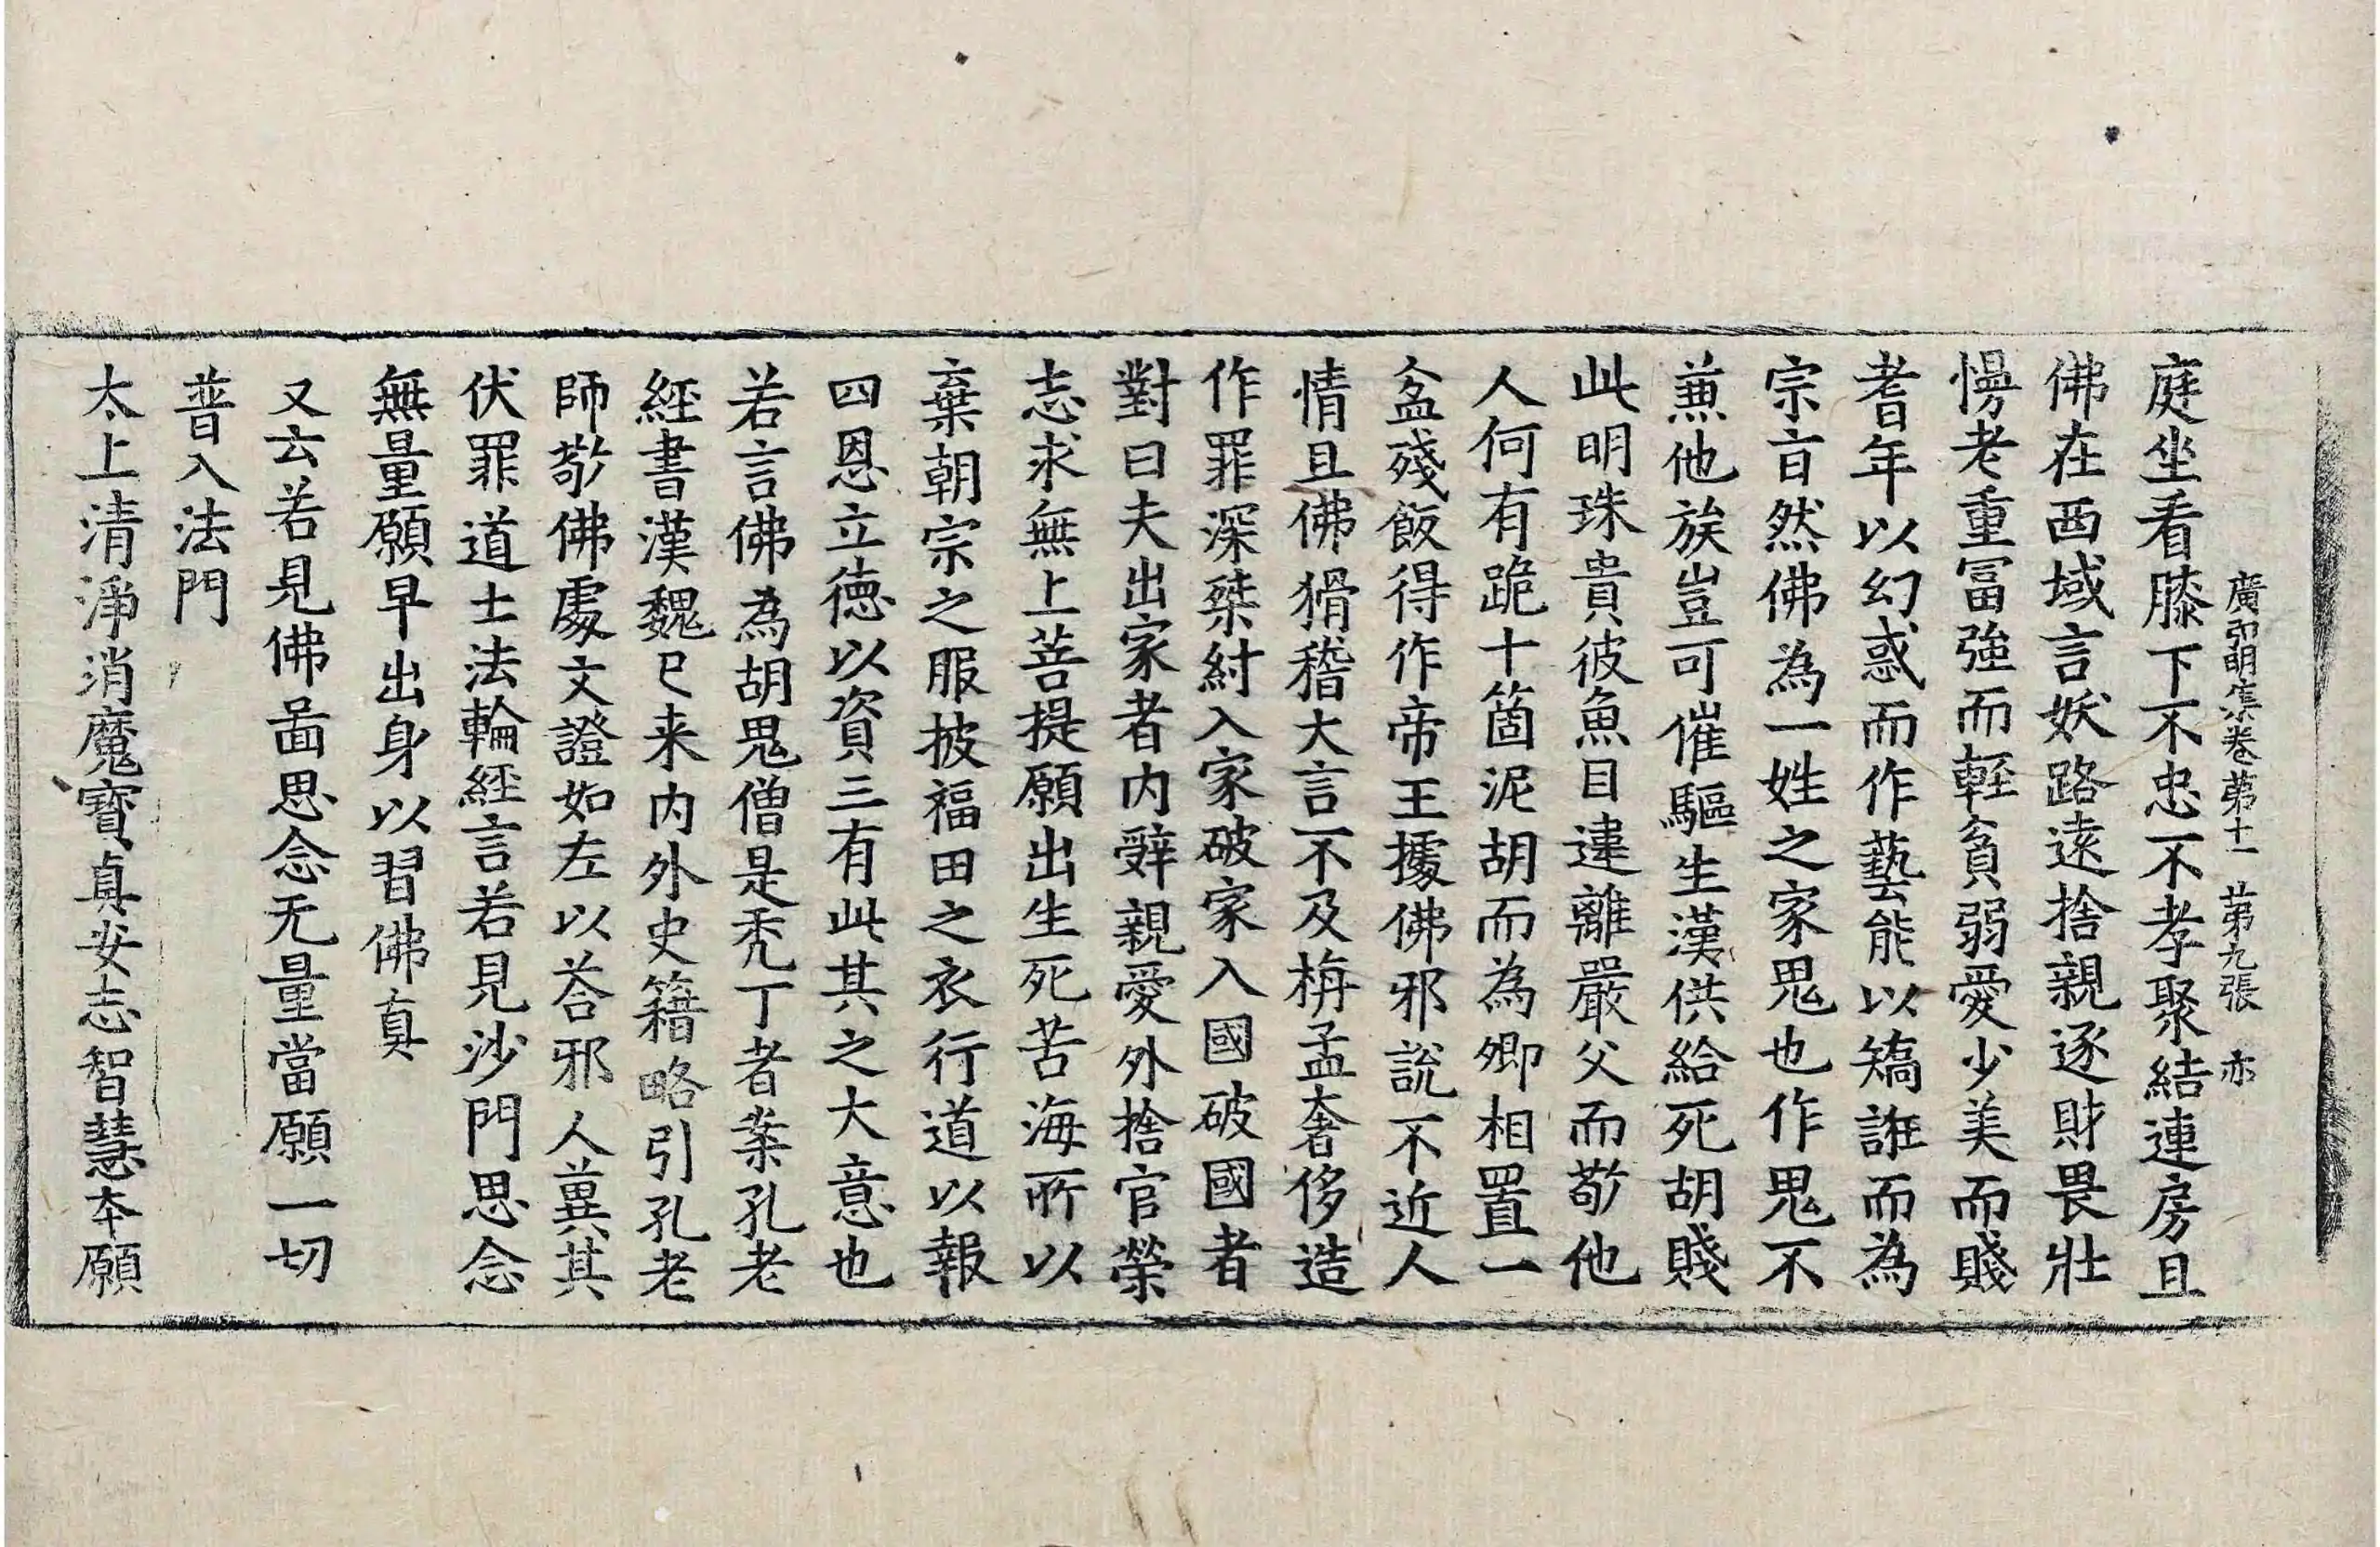 廣弘明集卷苐十一 苐九張 亦
庭坐看膝下不忠不孝聚結連房且
佛在西域言妖路遠捨親逐財畏壯
慢老重冨強而輊貧弱愛少美而賤
耆年以幻惑而作藝能以矯誑而為
宗㫖然佛為一姓之家鬼也作鬼不
兼他族豈可催驅生漢供給死胡賤
此明珠貴彼魚目違離嚴父而敬他
人何有跪十箇泥胡而為卿相置一
盆殘飯得作帝王據佛邪說不近人
情且佛猾稽大言不及栴孟奢侈造
作罪深桀紂入家破家入國破國者
對曰夫出家者内辤親愛外捨官榮
志求無上菩提願出生死苦海所以
棄朝宗之服披福田之衣行道以報
四恩立徳以資三有此其之大意也
若言佛為胡鬼僧是秃丁者案孔老
經書漢魏已来内外史籍略引孔老
師敬佛處文證如左以荅邪人兾其
伏罪道士法輪經言若見沙門思念
無量願早出身以習佛真
又云若見佛啚思念无量當願一切
普入法門
太上清淨消魔寶真安志智慧本願